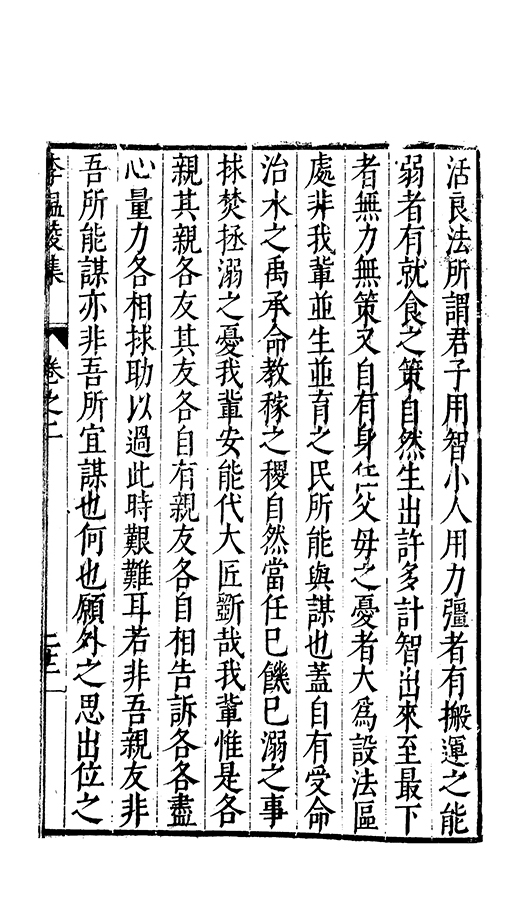 活良法所謂君子用智小人用力彊者有搬運之能
弱者有就食之策自然生出許多計智出來至最下
者無力無策又自有身任父母之憂者大爲設法區
處非我輩並生並育之民所能與謀也蓋自有受命
治水之禹承命教稼之稷自然當任已饑已溺之事
捄焚拯溺之憂我輩安能代大匠斲哉我輩惟是各
親其親各友其友各自有親友各自相告訴各各盡
心量力各相捄助以過此時艱難耳若非吾親友非
吾所能謀亦非吾所宜謀也何也願外之思出位之
李溫陵集
卷之二
二十二